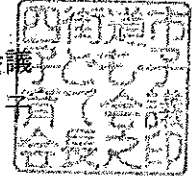 議
子
四街道市
子ども子
育て会議
会長之印